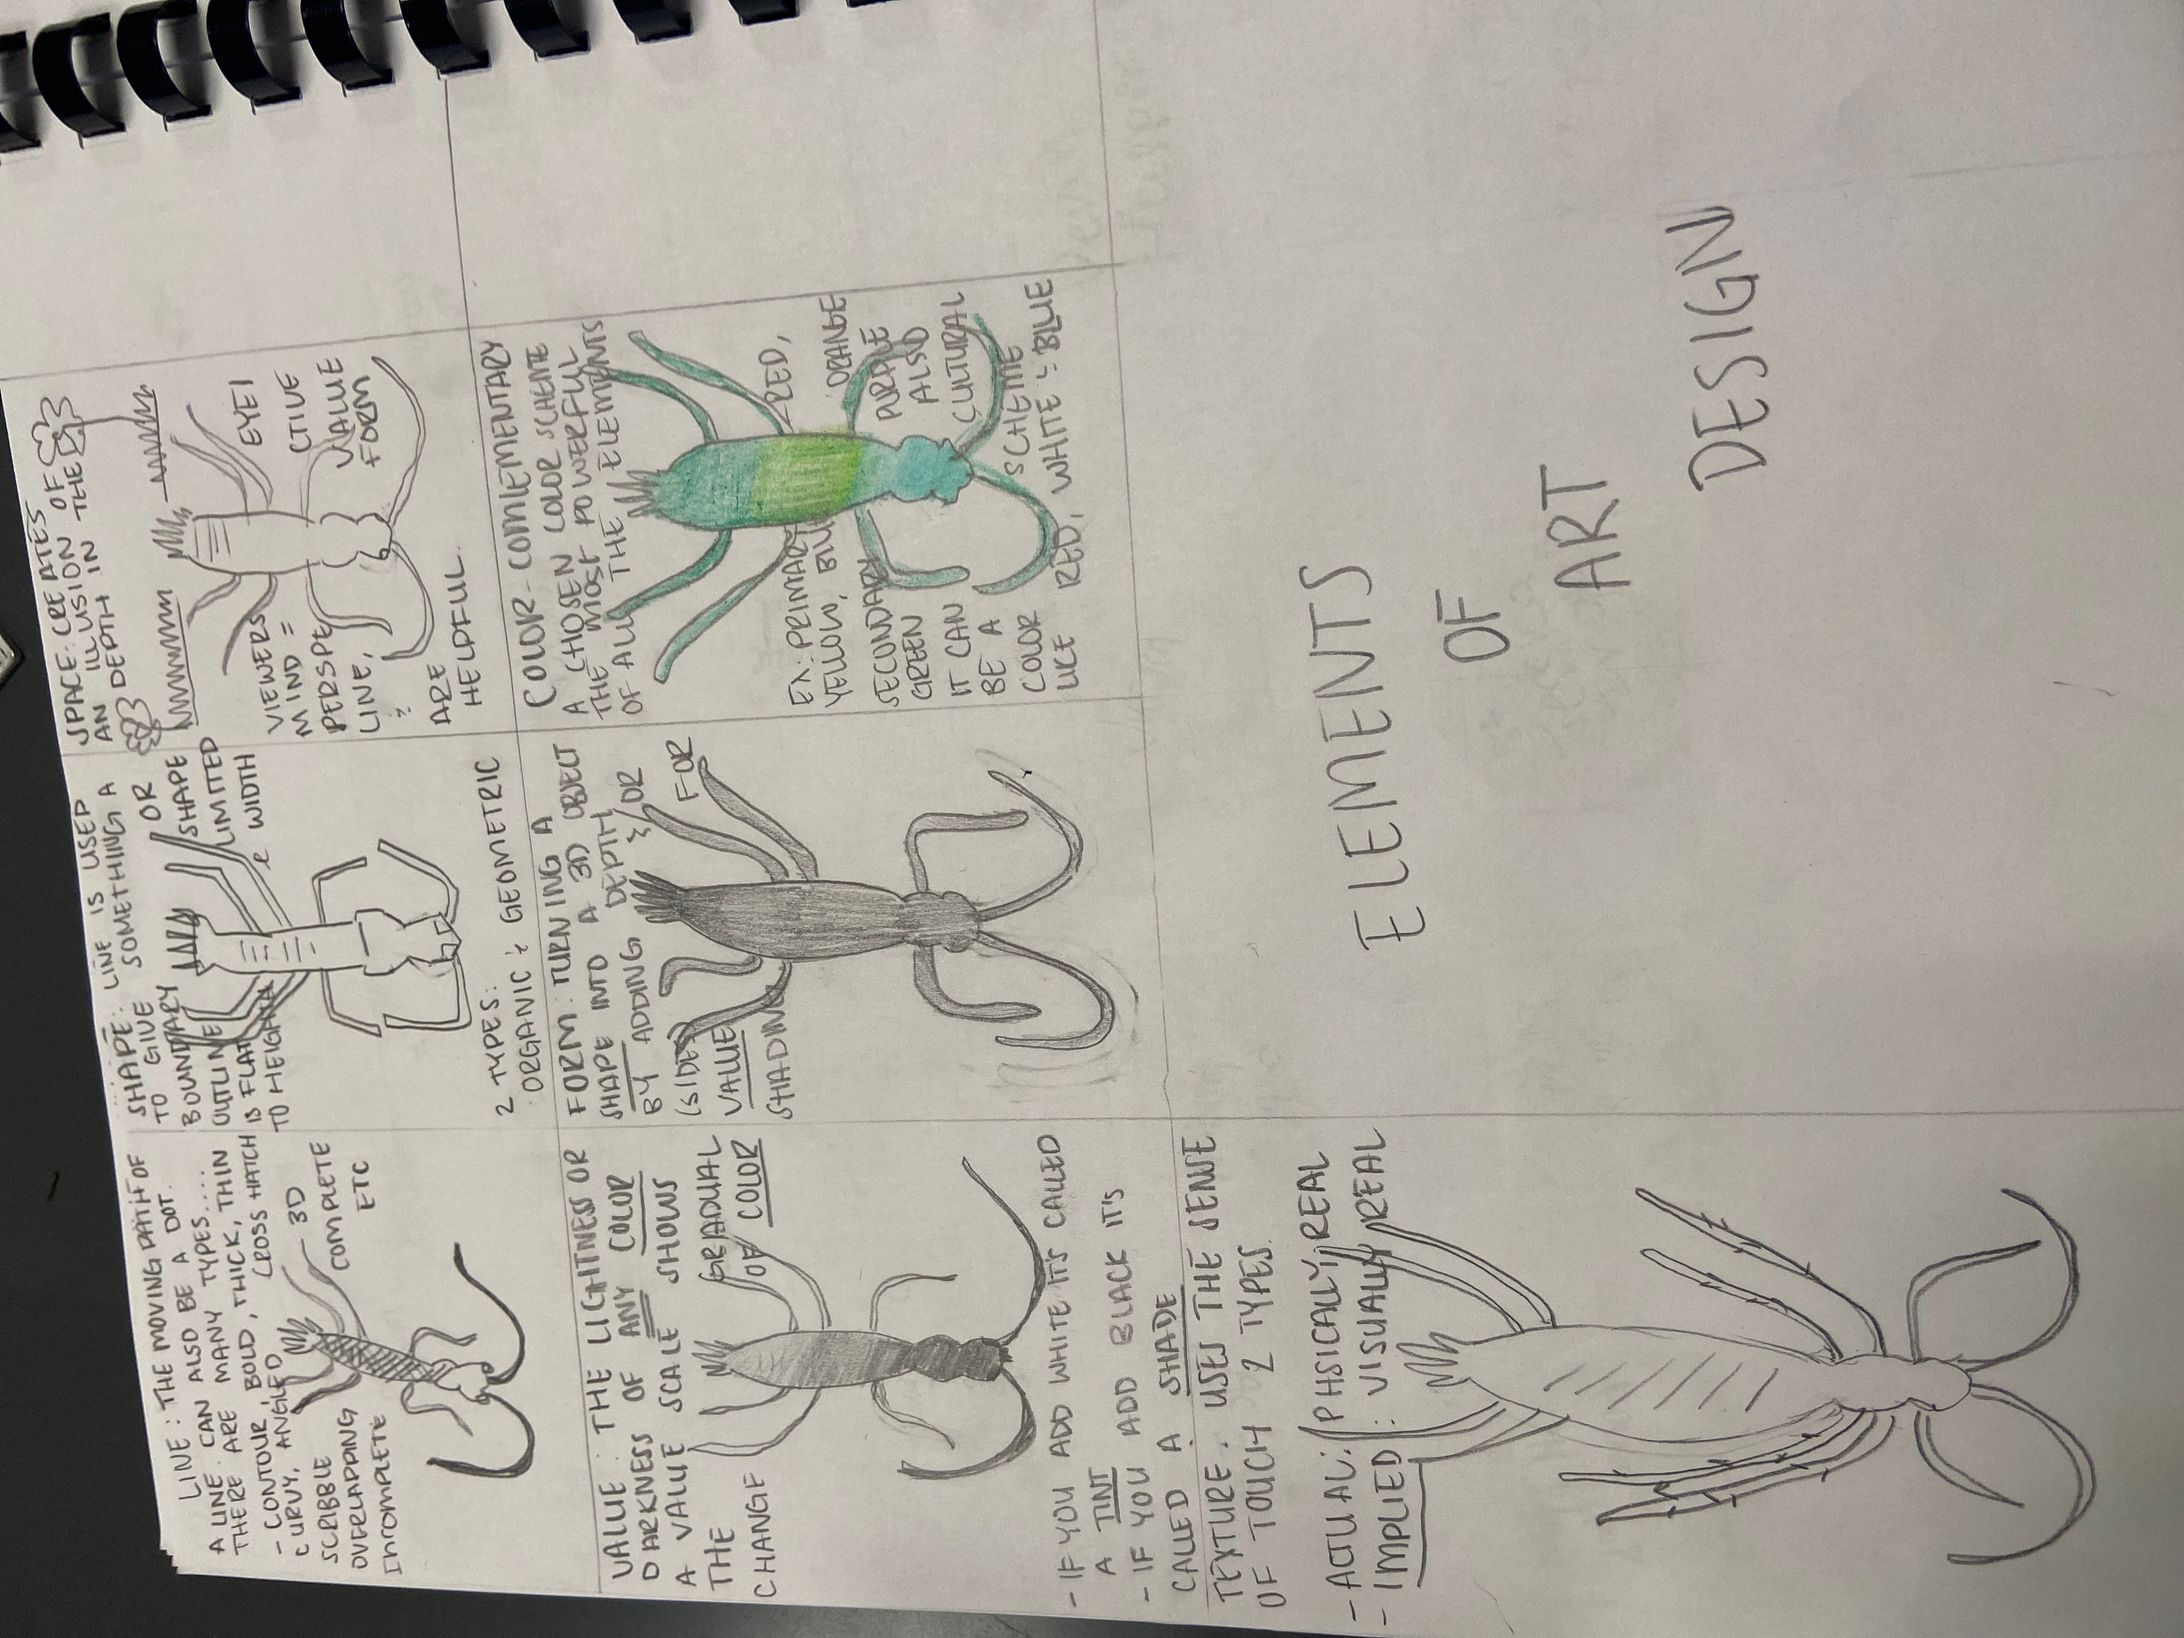 LINE: THE MOVING PATH OF
A LINE CAN ALSO BE A DOT.
THERE ARE MANY TYPES....
- CONTOUR, BOLD, THICK, THIN
CURVY, ANGLED, CROSS HATCH
SCRIBBLE 3D
OVERLAPPING COMPLETE
INCOMPLETE ETC
SHAPE: LINE IS USED
TO GIVE SOMETHING A
BOUNDARY OR
OUTLINE SHAPE
IS FLAT LIMITED
TO HEIGHT & WIDTH
2 TYPES:
ORGANIC & GEOMETRIC
SPACE: CREATES
AN ILLUSION OF
DEPTH IN THE
VIEWERS EYE
MIND =
PERSPECTIVE
LINE, VALUE
& FORM
ARE
HELPFUL.
VALUE: THE LIGHTNESS OR
DARKNESS OF ANY COLOR
A VALUE SCALE SHOWS
THE GRADUAL
CHANGE OF COLOR
- IF YOU ADD WHITE IT'S CALLED
A TINT
- IF YOU ADD BLACK IT'S
CALLED A SHADE
FORM: TURNING A
SHAPE INTO A 3D OBJECT
BY ADDING DEPTH
(SIDES) &/OR
VALUE FOR
SHADING
COLOR-COMLEMENTARY
A CHOSEN COLOR SCHEME
THE MOST POWERFUL
OF ALL THE ELEMENTS
EX: PRIMARY RED,
YELLOW, BLU
SECONDARY ORANGE
GREEN PURPLE
IT CAN ALSO
BE A CULTURAL
COLOR SCHEME
LIKE RED, WHITE & BLUE
TEXTURE: USES THE SENSE
OF TOUCH 2 TYPES.
- ACTUAL: PHSICALLY REAL
- IMPLIED: VISUALLY REAL
ELEMENTS
OF
ART
DESIGN